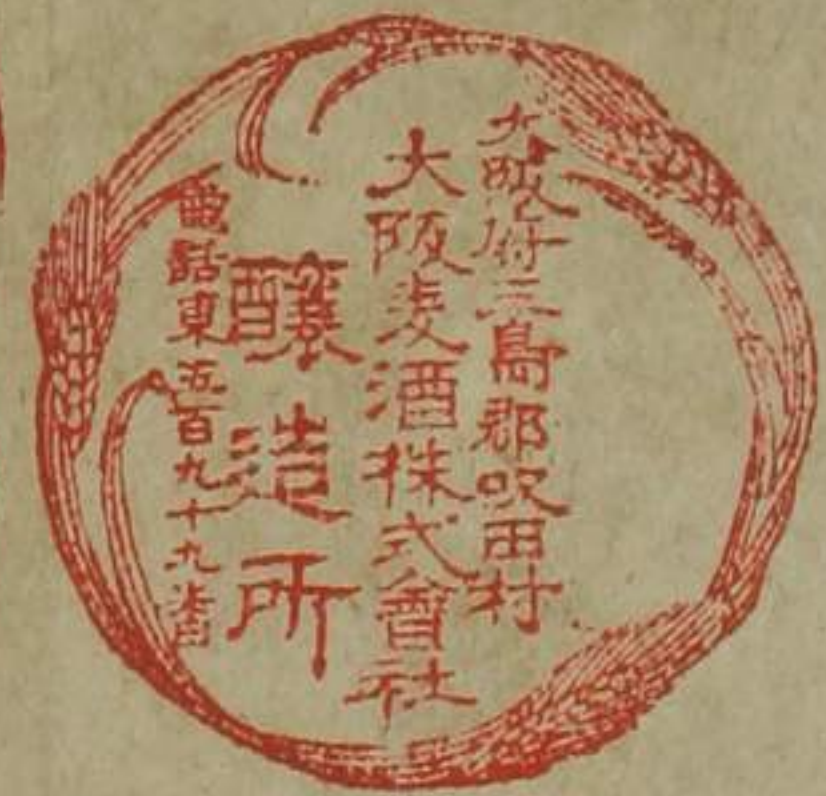 大阪府三島郡吹田村
大阪麦酒株式會社
醸造所
電話東五百九十九番